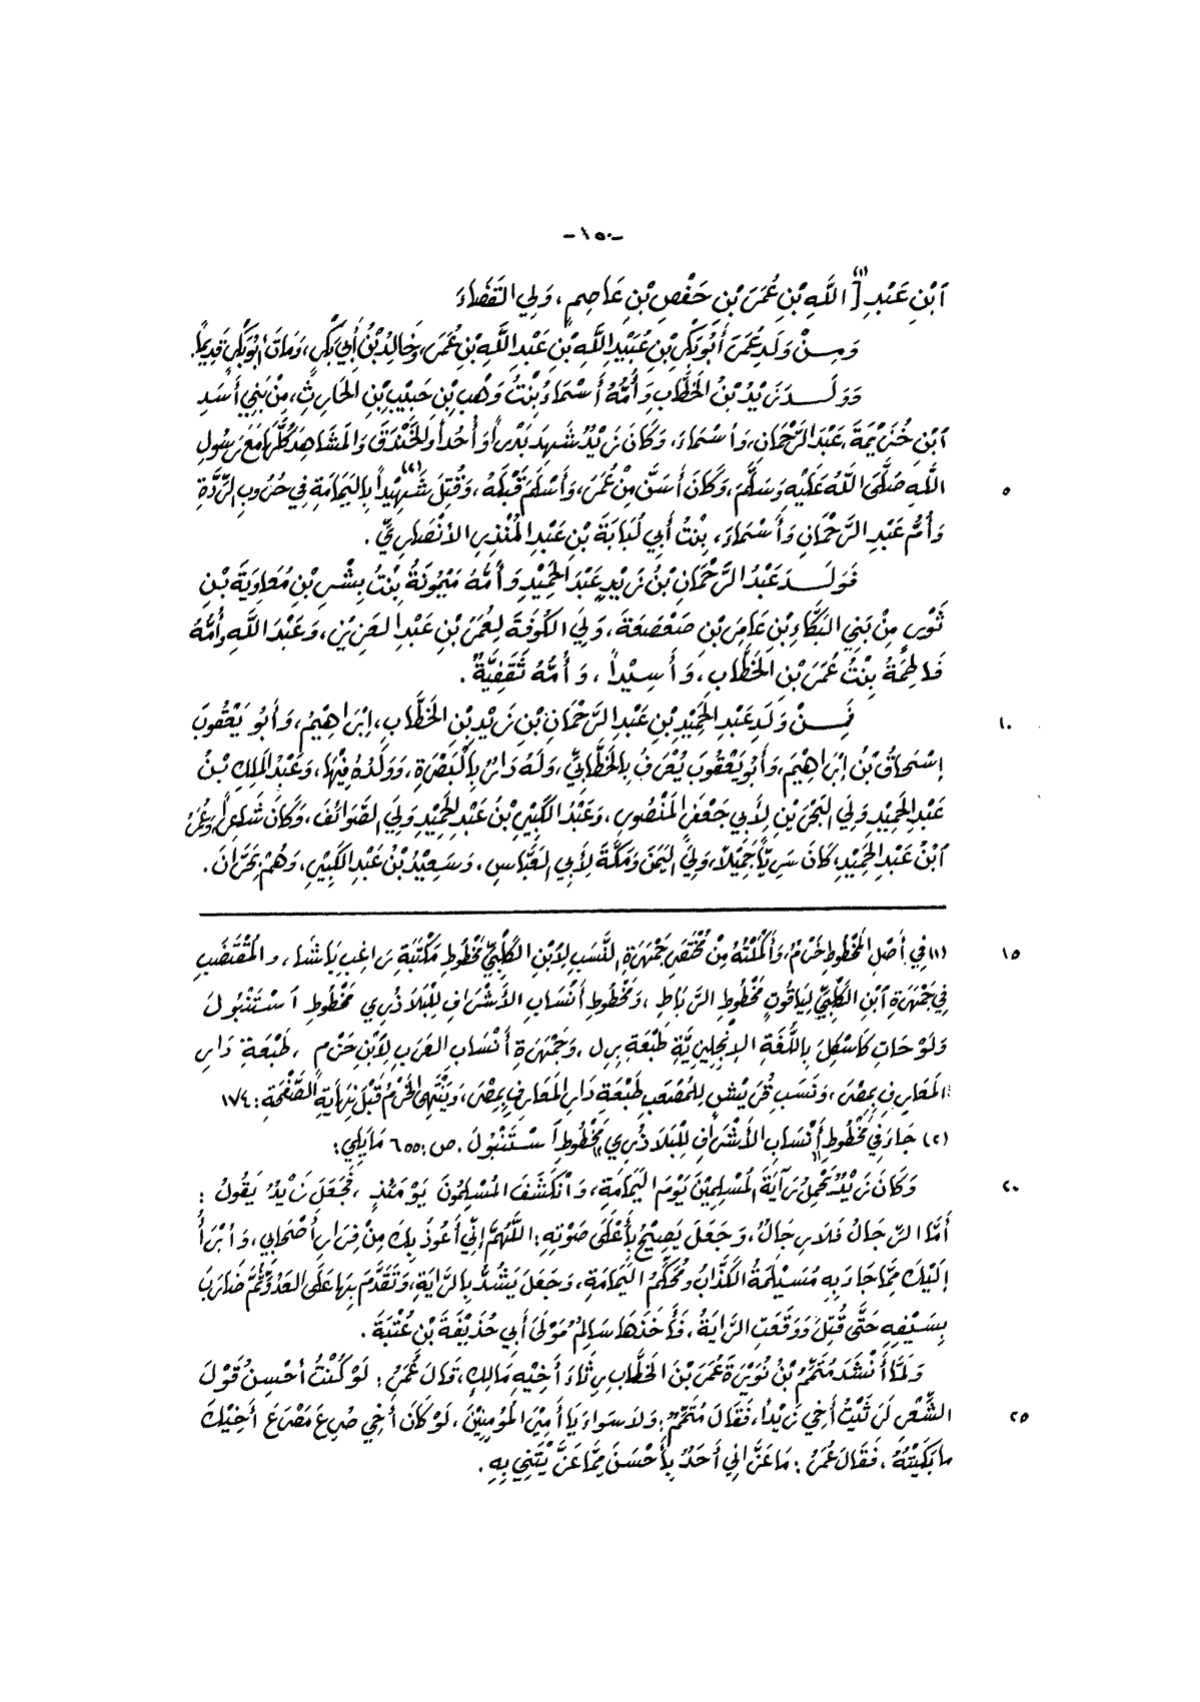 -١٥٠-
ٱبْنِ عَبْدِ [(١) اللَّهِ بْنِ عُمَرَ بْنِ حَفْصِ بْنِ عَاصِمٍ، وَلِي القَضَاءَ
وَمِنْ وَلَدِ عُمَرَ أَبُو بَكْرِ بْنِ عُبَيْدِ اللَّهِ بْنِ عَبْدِ اللَّهِ بْنِ عُمَرَ، وَخَالِدُ بْنُ أَبِي بَكْرٍ، وَمَاتَ أَبُو بَكْرٍ قَدِيماً.
وَوَلَدَ زَيْدُ بْنُ الخَطَّابِ وَأُمُّهُ أَسْمَاءُ بِنْتُ وَهْبِ بْنِ حَبِيْبِ بْنِ الحَارِثِ، مِنْ بَنِي أَسَدِ
ٱبْنِ خُزَيْمَةَ، عَبْدَ الرَّحْمَانِ، وَأَسْمَاءَ، وَكَانَ زَيْدٌ شَهِدَ بَدْراً وَأُحُداً وَالخَنْدَقَ وَالمَشَاهِدَ كُلَّهَا مَعَ رَسُولِ
اللَّهِ صَلَّى اللَّهُ عَلَيْهِ وَسَلَّمَ، وَكَانَ أَسَنَّ مِنْ عُمَرَ، وَأَسْلَمَ قَبْلَهُ، وَقُتِلَ شَهِيْداً(٢) بِاليَمَامَةِ فِي حُرُوبِ الرِّدَّةِ ٥
وَأُمُّ عَبْدِ الرَّحْمَانِ وَأَسْمَاءَ، بِنْتُ أَبِي لُبَابَةَ بْنِ عَبْدِ المُنْذِرِ الأَنْصَارِيِّ.
فَوَلَدَ عَبْدُ الرَّحْمَانِ بْنُ زَيْدٍ عَبْدَ الحَمِيْدِ وَأُمُّهُ مَيْمُونَةُ بِنْتُ بِشْرِ بْنِ مُعَاوِيَةَ بْنِ
ثَوْرٍ مِنْ بَنِي البَكَّاءِ بْنِ عَامِرِ بْنِ صَعْصَعَةَ، وَلِيَ الكُوفَةَ لِعُمَرَ بْنِ عَبْدِ العَزِيْزِ، وَعَبْدَ اللَّهِ وَأُمُّهُ
فَاطِمَةُ بِنْتُ عُمَرَ بْنِ الخَطَّابِ، وَأَسِيْداً، وَأُمُّهُ ثَقَفِيَّةٌ.
فَمِنْ وَلَدِ عَبْدِ الحَمِيْدِ بْنِ عَبْدِ الرَّحْمَانِ بْنِ زَيْدِ بْنِ الخَطَّابِ، إِبْرَاهِيْمُ، وَأَبُو يَعْقُوبَ ١٠
إِسْحَاقُ بْنُ إِبْرَاهِيْمَ، وَأَبُو يَعْقُوبَ يُعْرَفُ بِالخَطَّابِيِّ، وَلَهُ دَارٌ بِالبَصْرَةِ، وَوَلَدُهُ فِيْهَا، وَعَبْدُ المَلِكِ بْنُ
عَبْدِ الحَمِيْدِ وَلِيَ البَحْرَيْنِ لِأَبِي جَعْفَرٍ المَنْصُورِ، وَعَبْدُ الكَبِيْرِ بْنُ عَبْدِ الحَمِيْدِ وَلِيَ الصَّوَائِفَ، وَكَانَ شَاعِراً، وَعُمَرُ
ٱبْنُ عَبْدِ الحَمِيْدِ، كَانَ سَرِيّاً جَمِيْلاً، وَلِيَ اليَمَنَ وَمَكَّةَ لِأَبِي العَبَّاسِ، وَسَعِيْدُ بْنُ عَبْدِ الكَبِيْرِ، وَهُمْ بِحَرَّانَ.
(١) فِي أَصْلِ المَخْطُوطِ خَرْمٌ، وَأَكْمَلْتُهُ مِنْ مُخْتَصَرِ جَمْهَرَةِ النَّسَبِ لِٱبْنِ الكَلْبِيِّ مَخْطُوطِ مَكْتَبَةِ رَاغِبِ بَاشَا، وَالمُقْتَضَبِ ١٥
فِي جَمْهَرَةِ ٱبْنِ الكَلْبِيِّ لِيَاقُوتٍ مَخْطُوطِ الرِّبَاطِ، وَمَخْطُوطِ أَنْسَابِ الأَشْرَافِ لِلْبَلَاذُرِي مَخْطُوطِ ٱسْتَنْبُولَ
وَلَوْحَاتِ كَاسْكِلَ بِاللُّغَةِ الإِنْجِلِيزِيَّةِ طَبْعَةِ بِرِل، وَجَمْهَرَةِ أَنْسَابِ العَرَبِ لِٱبْنِ حَزْمٍ، طَبْعَةِ دَارِ
المَعَارِفِ بِمِصْرَ، وَنَسَبِ قُرَيْشٍ لِلمُصْعَبِ طَبْعَةِ دَارِ المَعَارِفِ بِمِصْرَ، وَيَنْتَهِي الخَرْمُ قَبْلَ نِهَايَةِ الصَّفْحَةِ: ١٧٤
(٢) جَاءَ فِي مَخْطُوطِ أَنْسَابِ الأَشْرَافِ لِلْبَلَاذُرِي، مَخْطُوطِ ٱسْتَنْبُولَ. ص: ٦٥٥ مَايَلِي:
وَكَانَ زَيْدٌ يَحْمِلُ رَايَةَ المُسْلِمِيْنَ يَوْمَ اليَمَامَةِ، وَٱنْكَشَفَ المُسْلِمُونَ يَوْمَئِذٍ، فَجَعَلَ زَيْدٌ يَقُولُ: ٢٠
أَمَّا الرِّجَالُ فَلَا رِجَالُ، وَجَعَلَ يَصِيْحُ بِأَعْلَى صَوْتِهِ: اللَّهُمَّ إِنِّي أَعُوذُ بِكَ مِنْ فِرَارِ أَصْحَابِي، وَأَبْرَأُ
إِلَيْكَ مِمَّا جَاءَ بِهِ مُسَيْلِمَةُ الكَذَّابُ وَمُحَكَّمُ اليَمَامَةِ، وَجَعَلَ يَشُدُّ بِالرَّايَةِ، وَتَقَدَّمَ بِهَا عَلَى العَدُوِّ ثُمَّ ضَارَبَ
بِسَيْفِهِ حَتَّى قُتِلَ وَوَقَعَتِ الرَّايَةُ، فَأَخَذَهَا سَالِمٌ مَوْلَى أَبِي حُذَيْفَةَ بْنِ عُتْبَةَ.
وَلَمَّا أَنْشَدَ مُتَمِّمُ بْنُ نُوَيْرَةَ عُمَرَ بْنَ الخَطَّابِ رِثَاءَ أَخِيْهِ مَالِكٍ، قَالَ عُمَرُ: لَوْ كُنْتُ أُحْسِنُ قَوْلَ
الشِّعْرِ لَرَثَيْتُ أَخِي زَيْداً، فَقَالَ مُتَمِّمٌ: وَلَا سَوَاءَ يَا أَمِيْرَ المُؤْمِنِيْنَ، لَوْ كَانَ أَخِي صُرِعَ مَصْرَعَ أَخِيْكَ ٢٥
مَا بَكَيْتُهُ، فَقَالَ عُمَرُ: مَا عَزَّانِي أَحَدٌ بِأَحْسَنَ مِمَّا عَزَّيْتَنِي بِهِ.